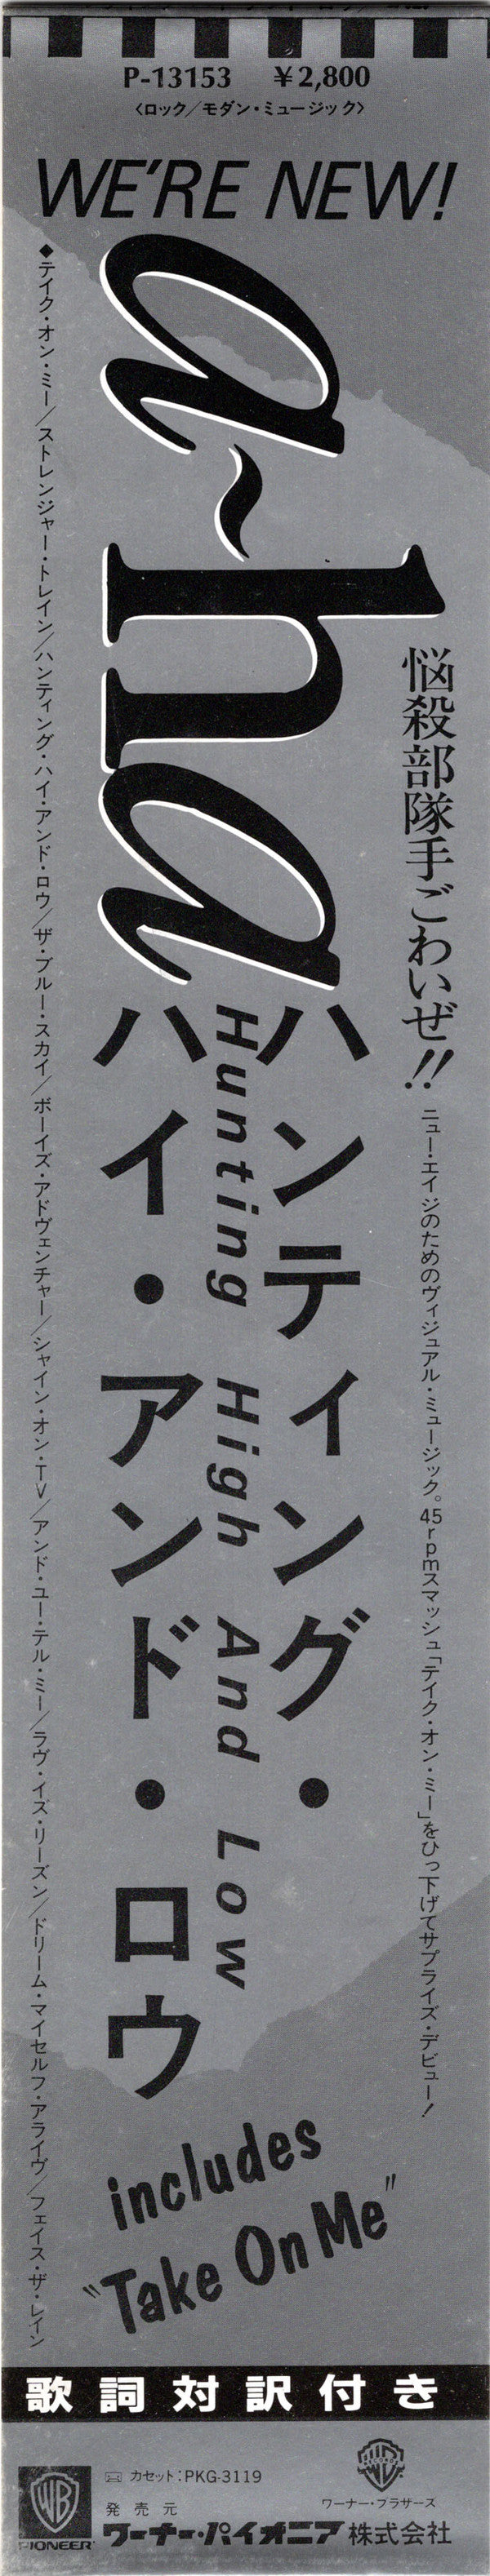 P-13153　￥2,800
〈ロック／モダン・ミュージック〉
WE'RE NEW!
a-ha
悩殺部隊手ごわいぜ!!
ニュー・エイジのためのヴィジュアル・ミュージック。45rpmスマッシュ「テイク・オン・ミー」をひっ下げてサプライズ・デビュー！
ハンティング・
Hunting High And Low
ハイ・アンド・ロウ
◆テイク・オン・ミー／ストレンジャー・トレイン／ハンティング・ハイ・アンド・ロウ／ザ・ブルー・スカイ／ボーイズ・アドヴェンチャー／シャイン・オン・TV／アンド・ユー・テル・ミー／ラヴ・イズ・リーズン／ドリーム・マイセルフ・アライヴ／フェイス・ザ・レイン
includes
"Take On Me"
歌詞対訳付き
カセット:PKG-3119
発売元
ワーナー・パイオニア株式会社
WB
PIONEER
WB RECORDS
ワーナー・ブラザーズ